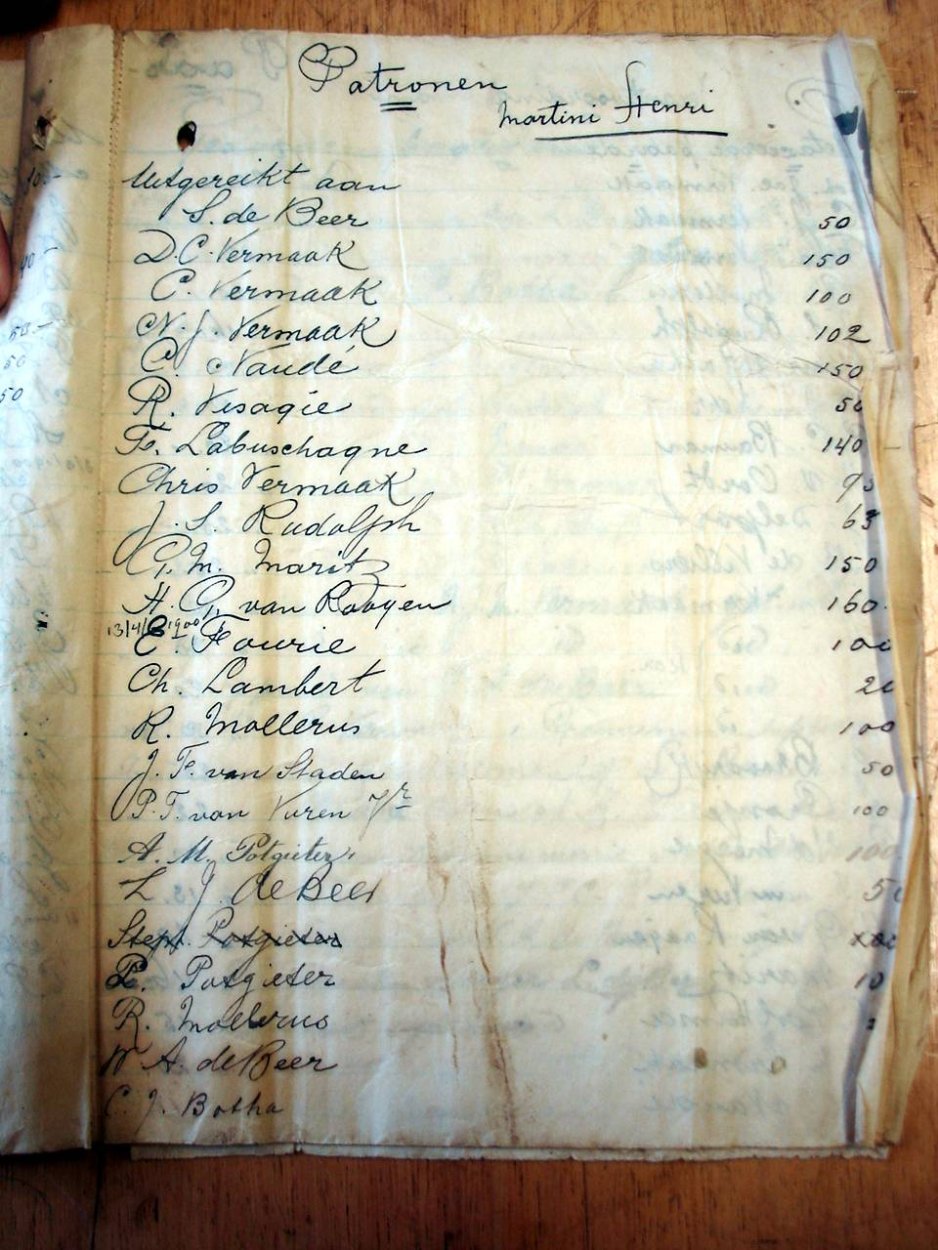 Patronen
Martini Henri
Uitgereikt aan
S. de Beer 50
D. C. Vermaak 150
C. Vermaak 100
N. J. Vermaak 102
C. Naudé 150
R. Visagie 50
F. Labuschagne 140
Chris Vermaak
J. S. Rudolph 63
G. M. Maritz 150
H. G. van Rooyen 160
13/4/1900
C. Fourie 100
Ch. Lambert 20
R. Mollerus 100
J. F. van Staden 50
P. T. van Vuren J/r 100
A. M. Potgieter 100
L J de Beer
Steph. Potgieter
P. Potgieter 10
R. Mollerus
W A. de Beer
C. J. Botha
40.-
50.-
50
50